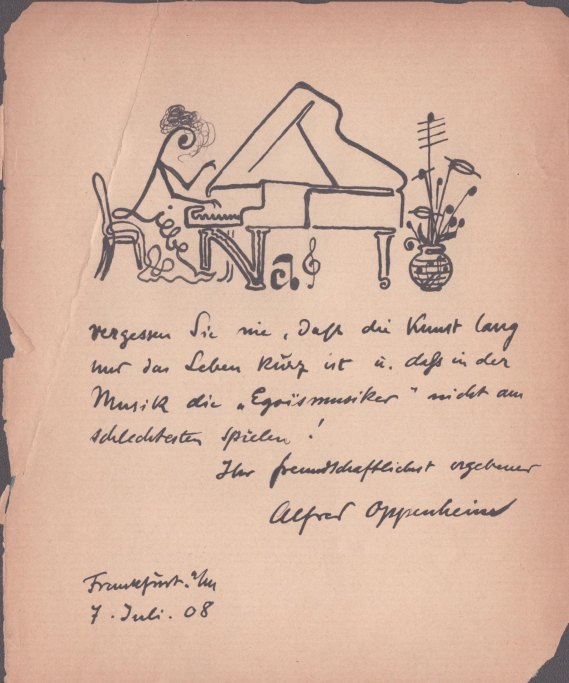 Liebe Na
vergessen Sie nie, daß die Kunst lang
und das Leben kurz ist u. daß in der
Musik die „Egoismusiker“ nicht am
schlechtesten spielen!
Ihr freundschaftlichst ergebener
Alfred Oppenheim
Frankfurt a/m
7. Juli. 08